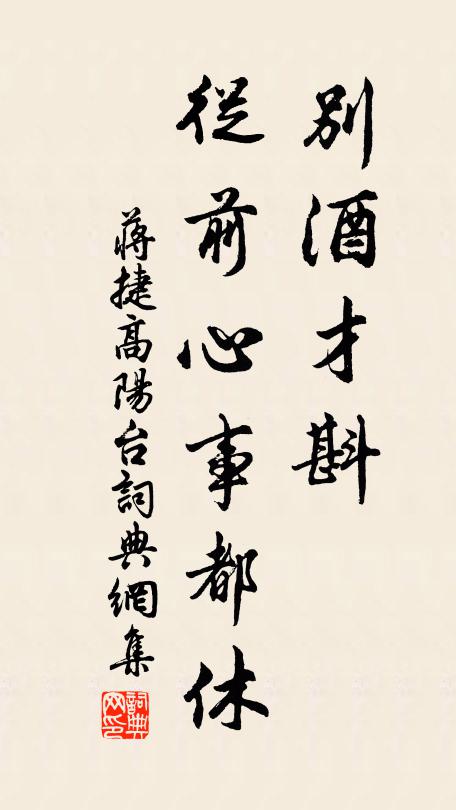 別酒才斟
從前心事都休
蔣捷高陽台詞典網集
詞典
网印